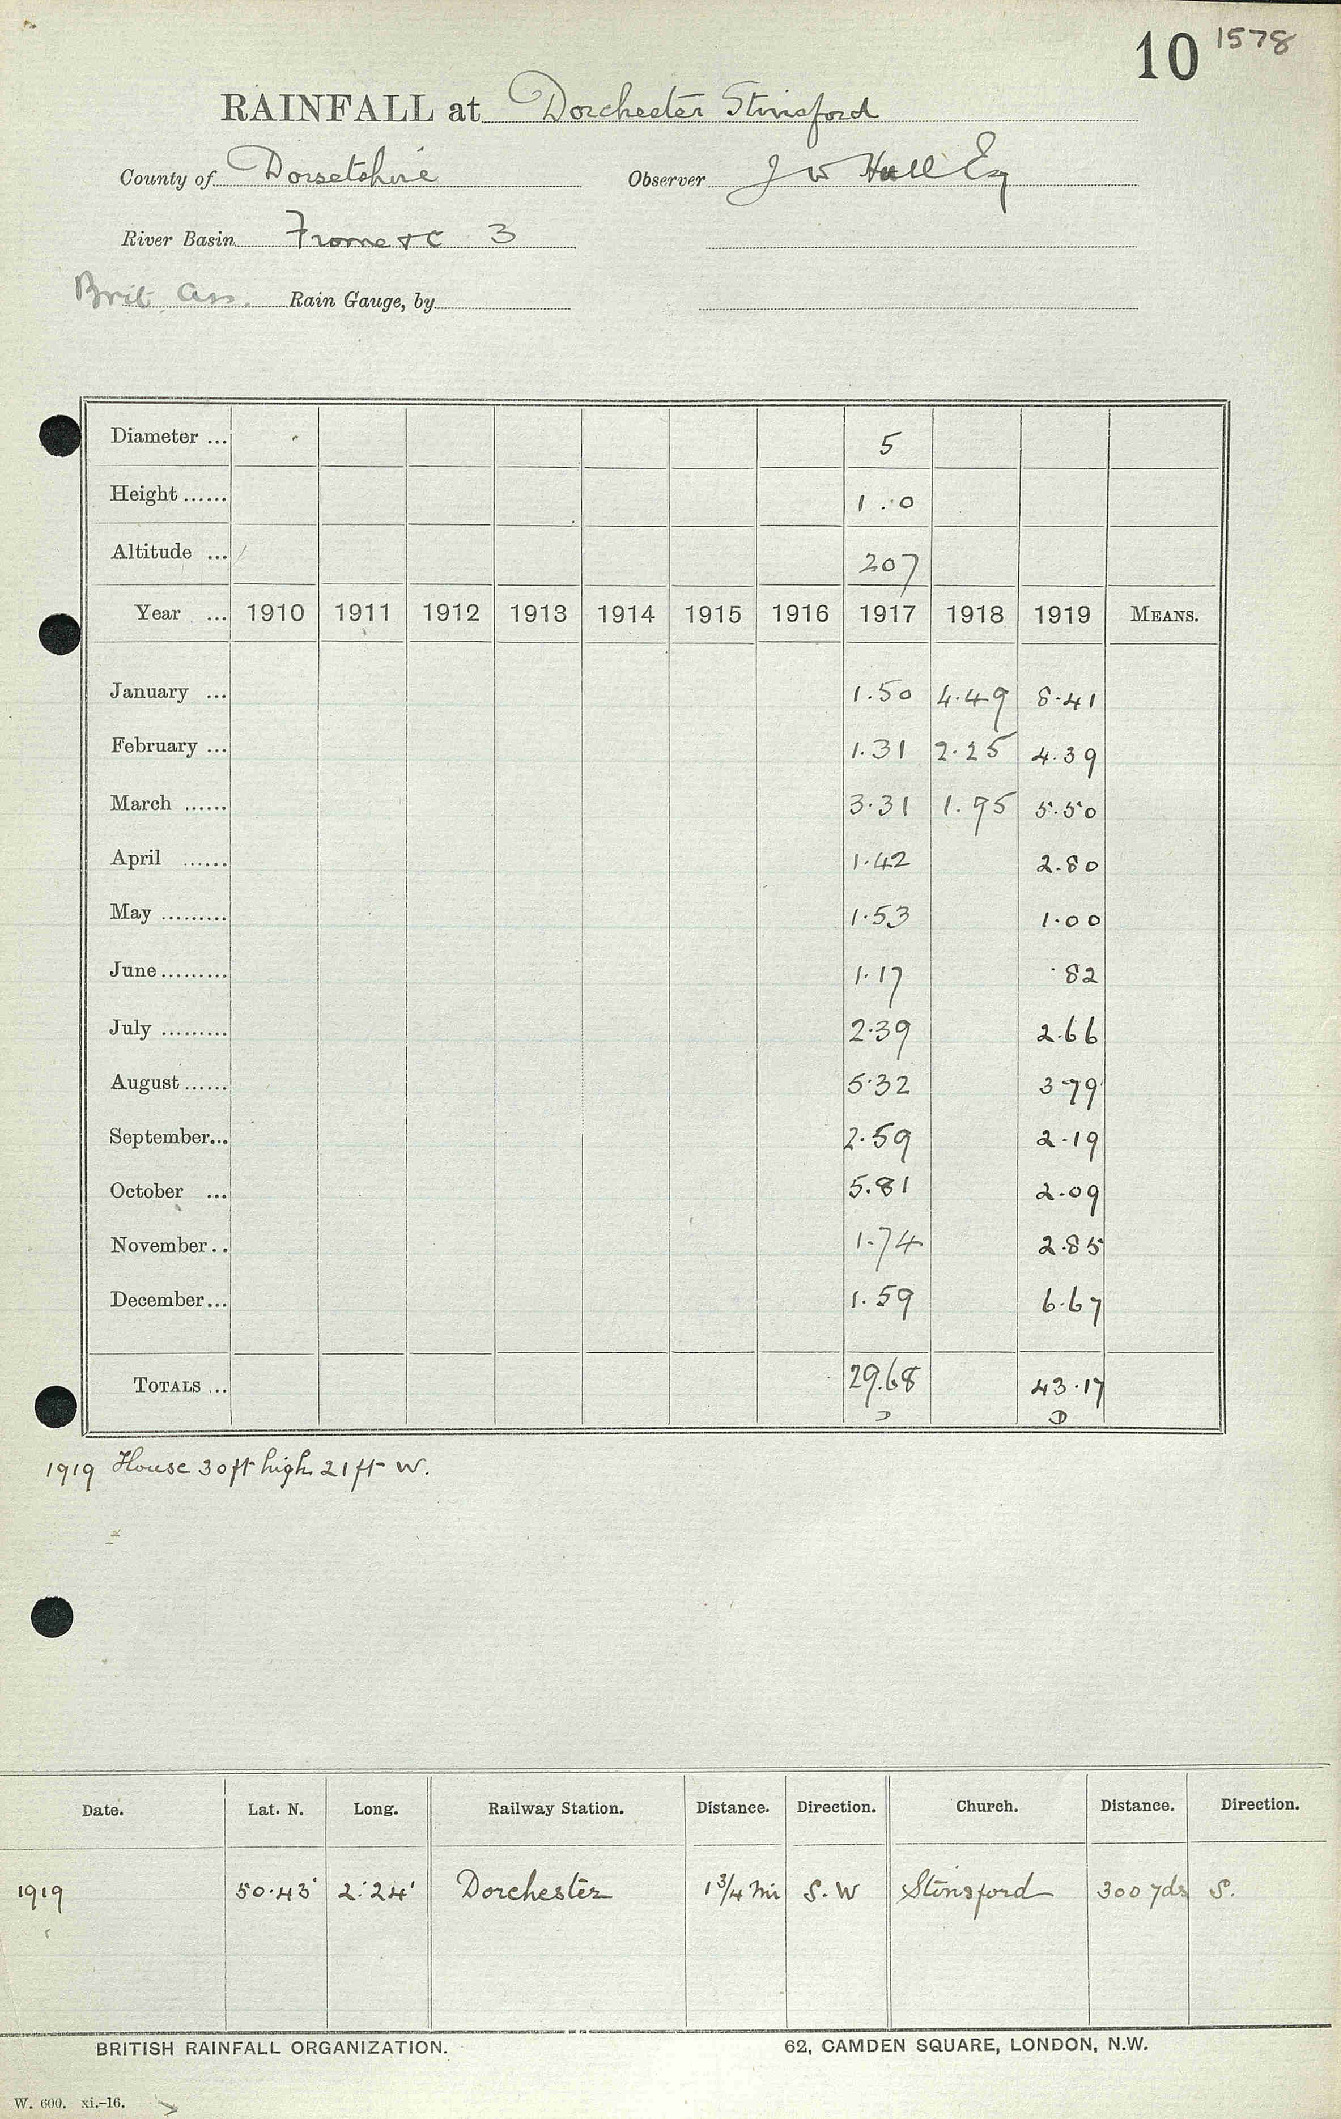 10 1578
RAINFALL at Dorchester Stinsford
County of Dorsetshire Observer J W Hull Esq
River Basin Frome &c 3
Brit. Ass. Rain Gauge, by
Diameter ... 5
Height ...... 1.0
Altitude ... 207
Year ... 1910 1911 1912 1913 1914 1915 1916 1917 1918 1919 MEANS.
January ... 1.50 4.49 8.41
February ... 1.31 2.25 4.39
March ...... 3.31 1.95 5.50
April ...... 1.42 2.80
May ......... 1.53 1.00
June ......... 1.17 .82
July ......... 2.39 2.66
August ...... 5.32 3.79
September... 2.59 2.19
October ... 5.81 2.09
November.. 1.74 2.85
December... 1.59 6.67
TOTALS ... 29.68 43.17
D D
1919 House 30ft high 21ft W.
Date. Lat. N. Long. Railway Station. Distance. Direction. Church. Distance. Direction.
1919 50.43' 2.24' Dorchester 1 3/4 mi S.W Stinsford 300 yds S.
BRITISH RAINFALL ORGANIZATION. 62, CAMDEN SQUARE, LONDON, N.W.
W. 600. xi.-16.